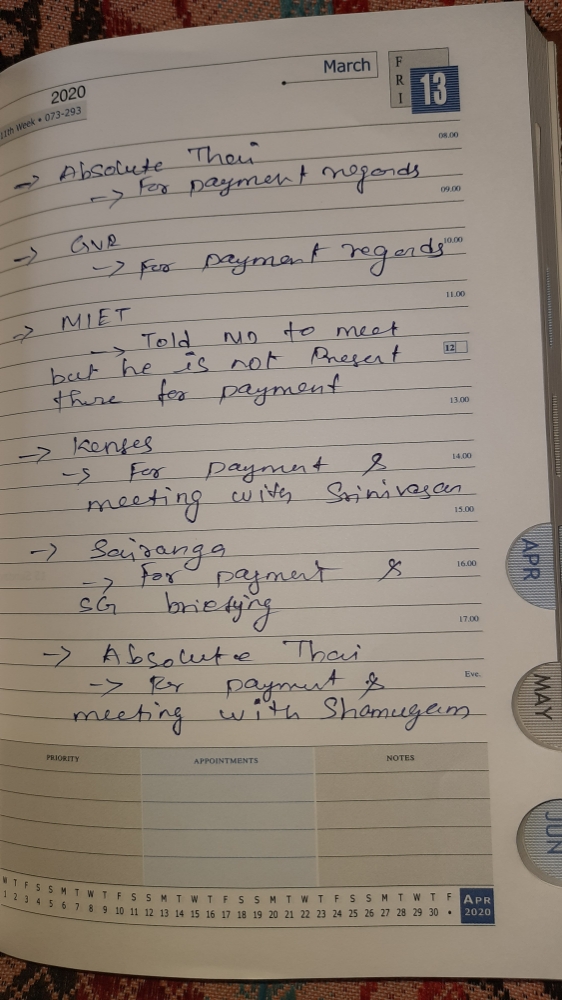 2020
March
FRI
13
11th Week • 073-293
08.00
→ Absolute Thai
→ For payment regards
09.00
→ GVR
10.00
→ For payment regards
11.00
→ MIET
→ Told MD to meet
12
but he is not Present
there for payment
13.00
→ Kenses
14.00
→ For payment &
meeting with Srinivasan
15.00
→ Sairanga
16.00
→ For payment &
SG briefying
17.00
→ Absolute Thai
Eve.
→ For payment &
meeting with Shamugam
PRIORITY APPOINTMENTS NOTES
W T F S S M T W T F S S M T W T F S S M T W T F S S M T W T F
1 2 3 4 5 6 7 8 9 10 11 12 13 14 15 16 17 18 19 20 21 22 23 24 25 26 27 28 29 30 •
APR
2020
APR
MAY
JUN